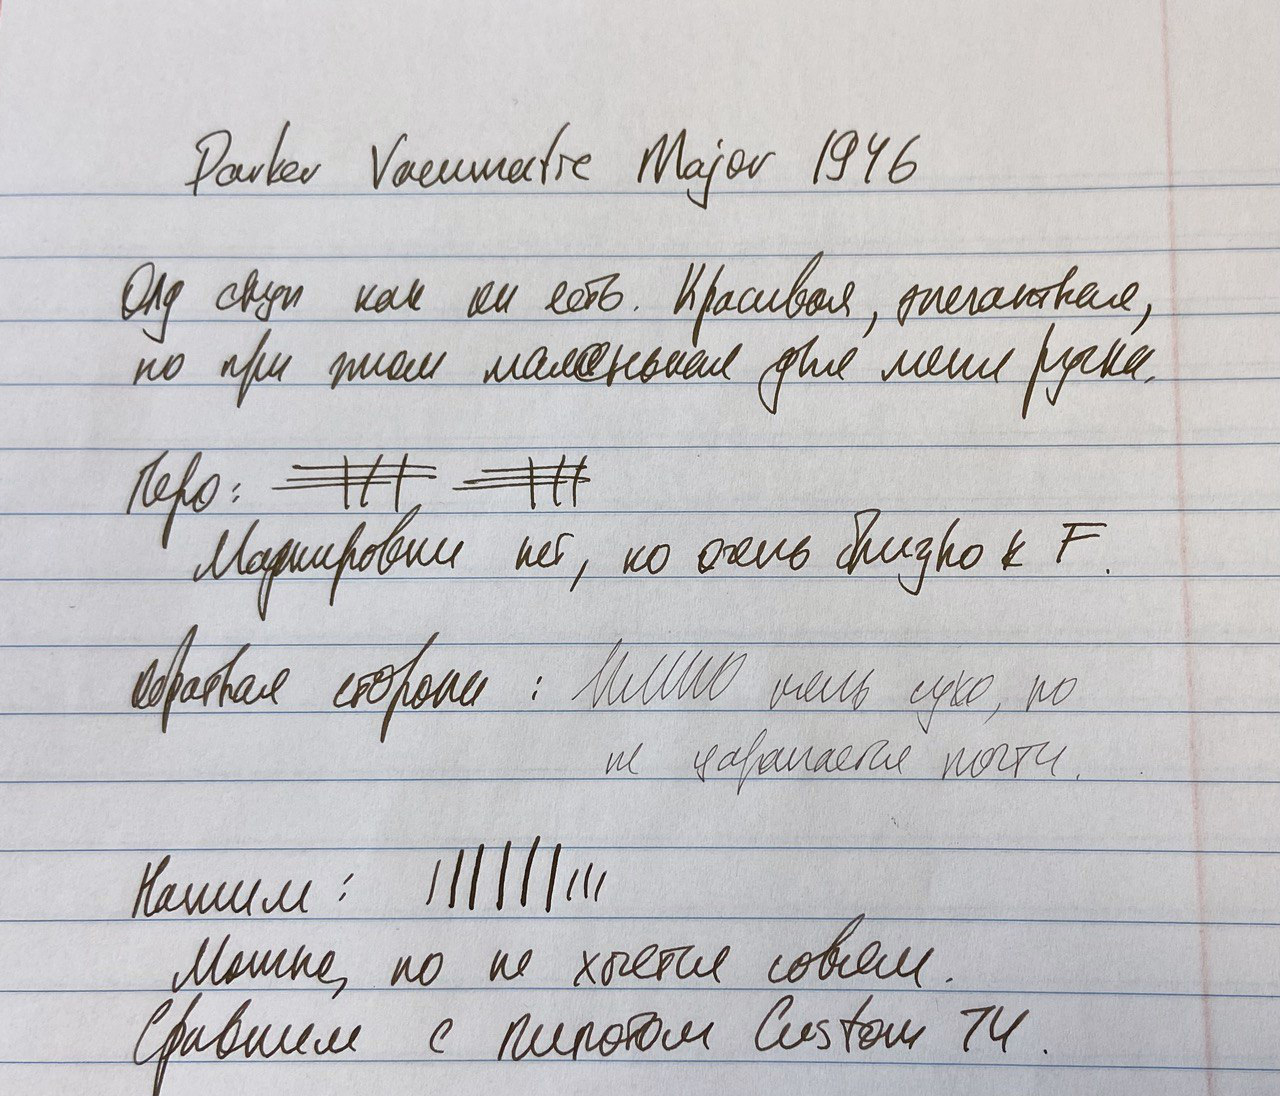 Parker Vacumatic Major 1946
Олд скул как он есть. Красивая, элегантная,
но при этом маленькая для меня ручка.
Перо:
Маркировки нет, но очень близко к F.
Обратная сторона: очень сухо, но
не царапается почти.
Нажим:
Можно, но не хочется совсем.
Сравним с пилотом Custom 74.